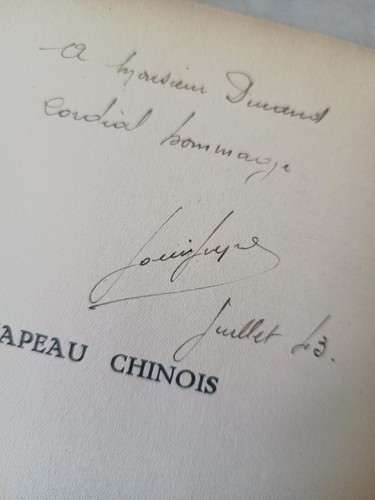 A Monsieur Durand
cordial hommage
Juillet 43.
APEAU CHINOIS